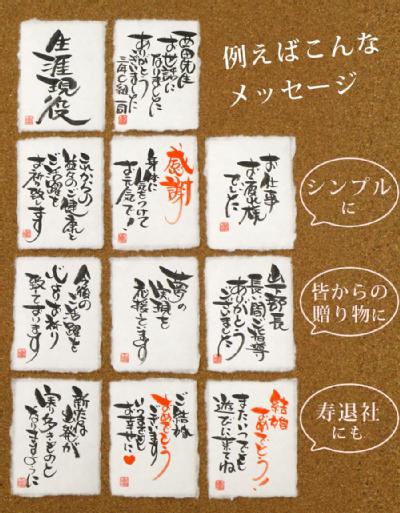 例えばこんな
メッセージ
生涯現役
西田先生
お世話に
なりました
ありがとう
ございました
これからの
益々のご健康と
ご活躍を
お祈り致します
感謝
身体に
気をつけて
お元気で!
お仕事
お疲れ様
でした
シンプル
に
今後の
ご活躍を
心よりお祈り
夢の
実現を
山下部長
長い間ご指導
ありがとう
ございました
皆からの
贈り物に
新たな
出発が
実り多きものと
なりますように
ご結婚
おめでとう
ございます
いつまでも
お幸せに
結婚
おめでとう!
またいつでも
遊びに来てね
寿退社
にも